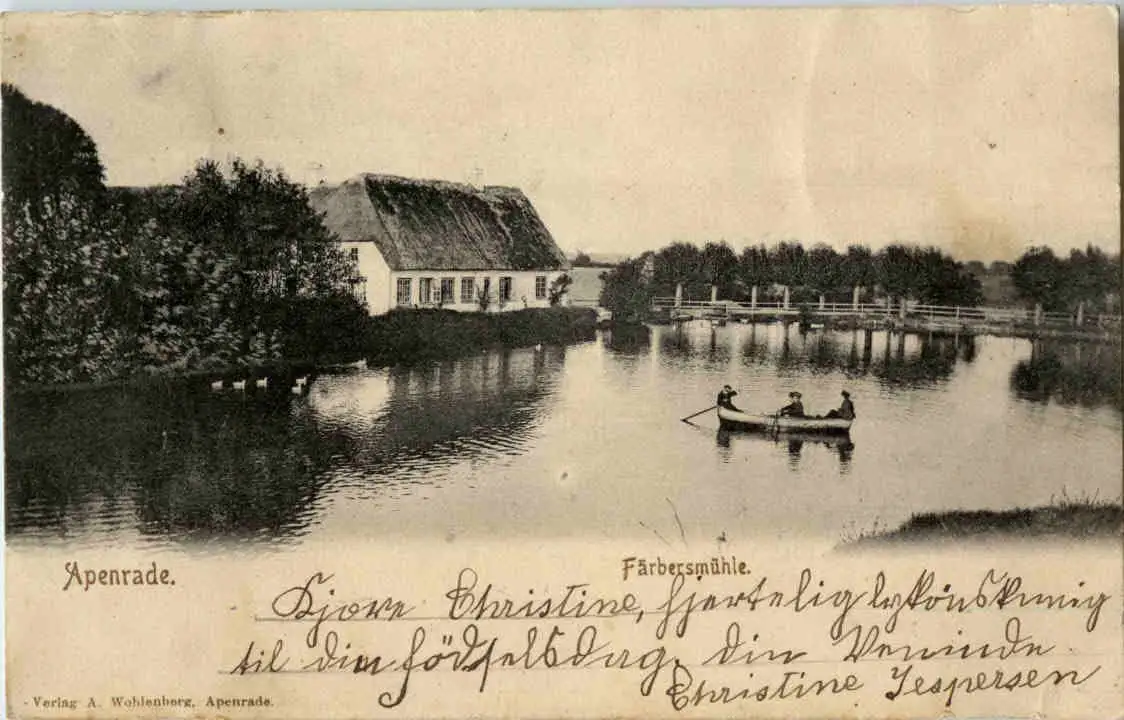 Apenrade.
Färbersmühle.
Kjøre Christine, hjertelig lykönskning
til din födselsdag, din Veninde
Christine Jespersen
Verlag A. Wohlenberg, Apenrade.